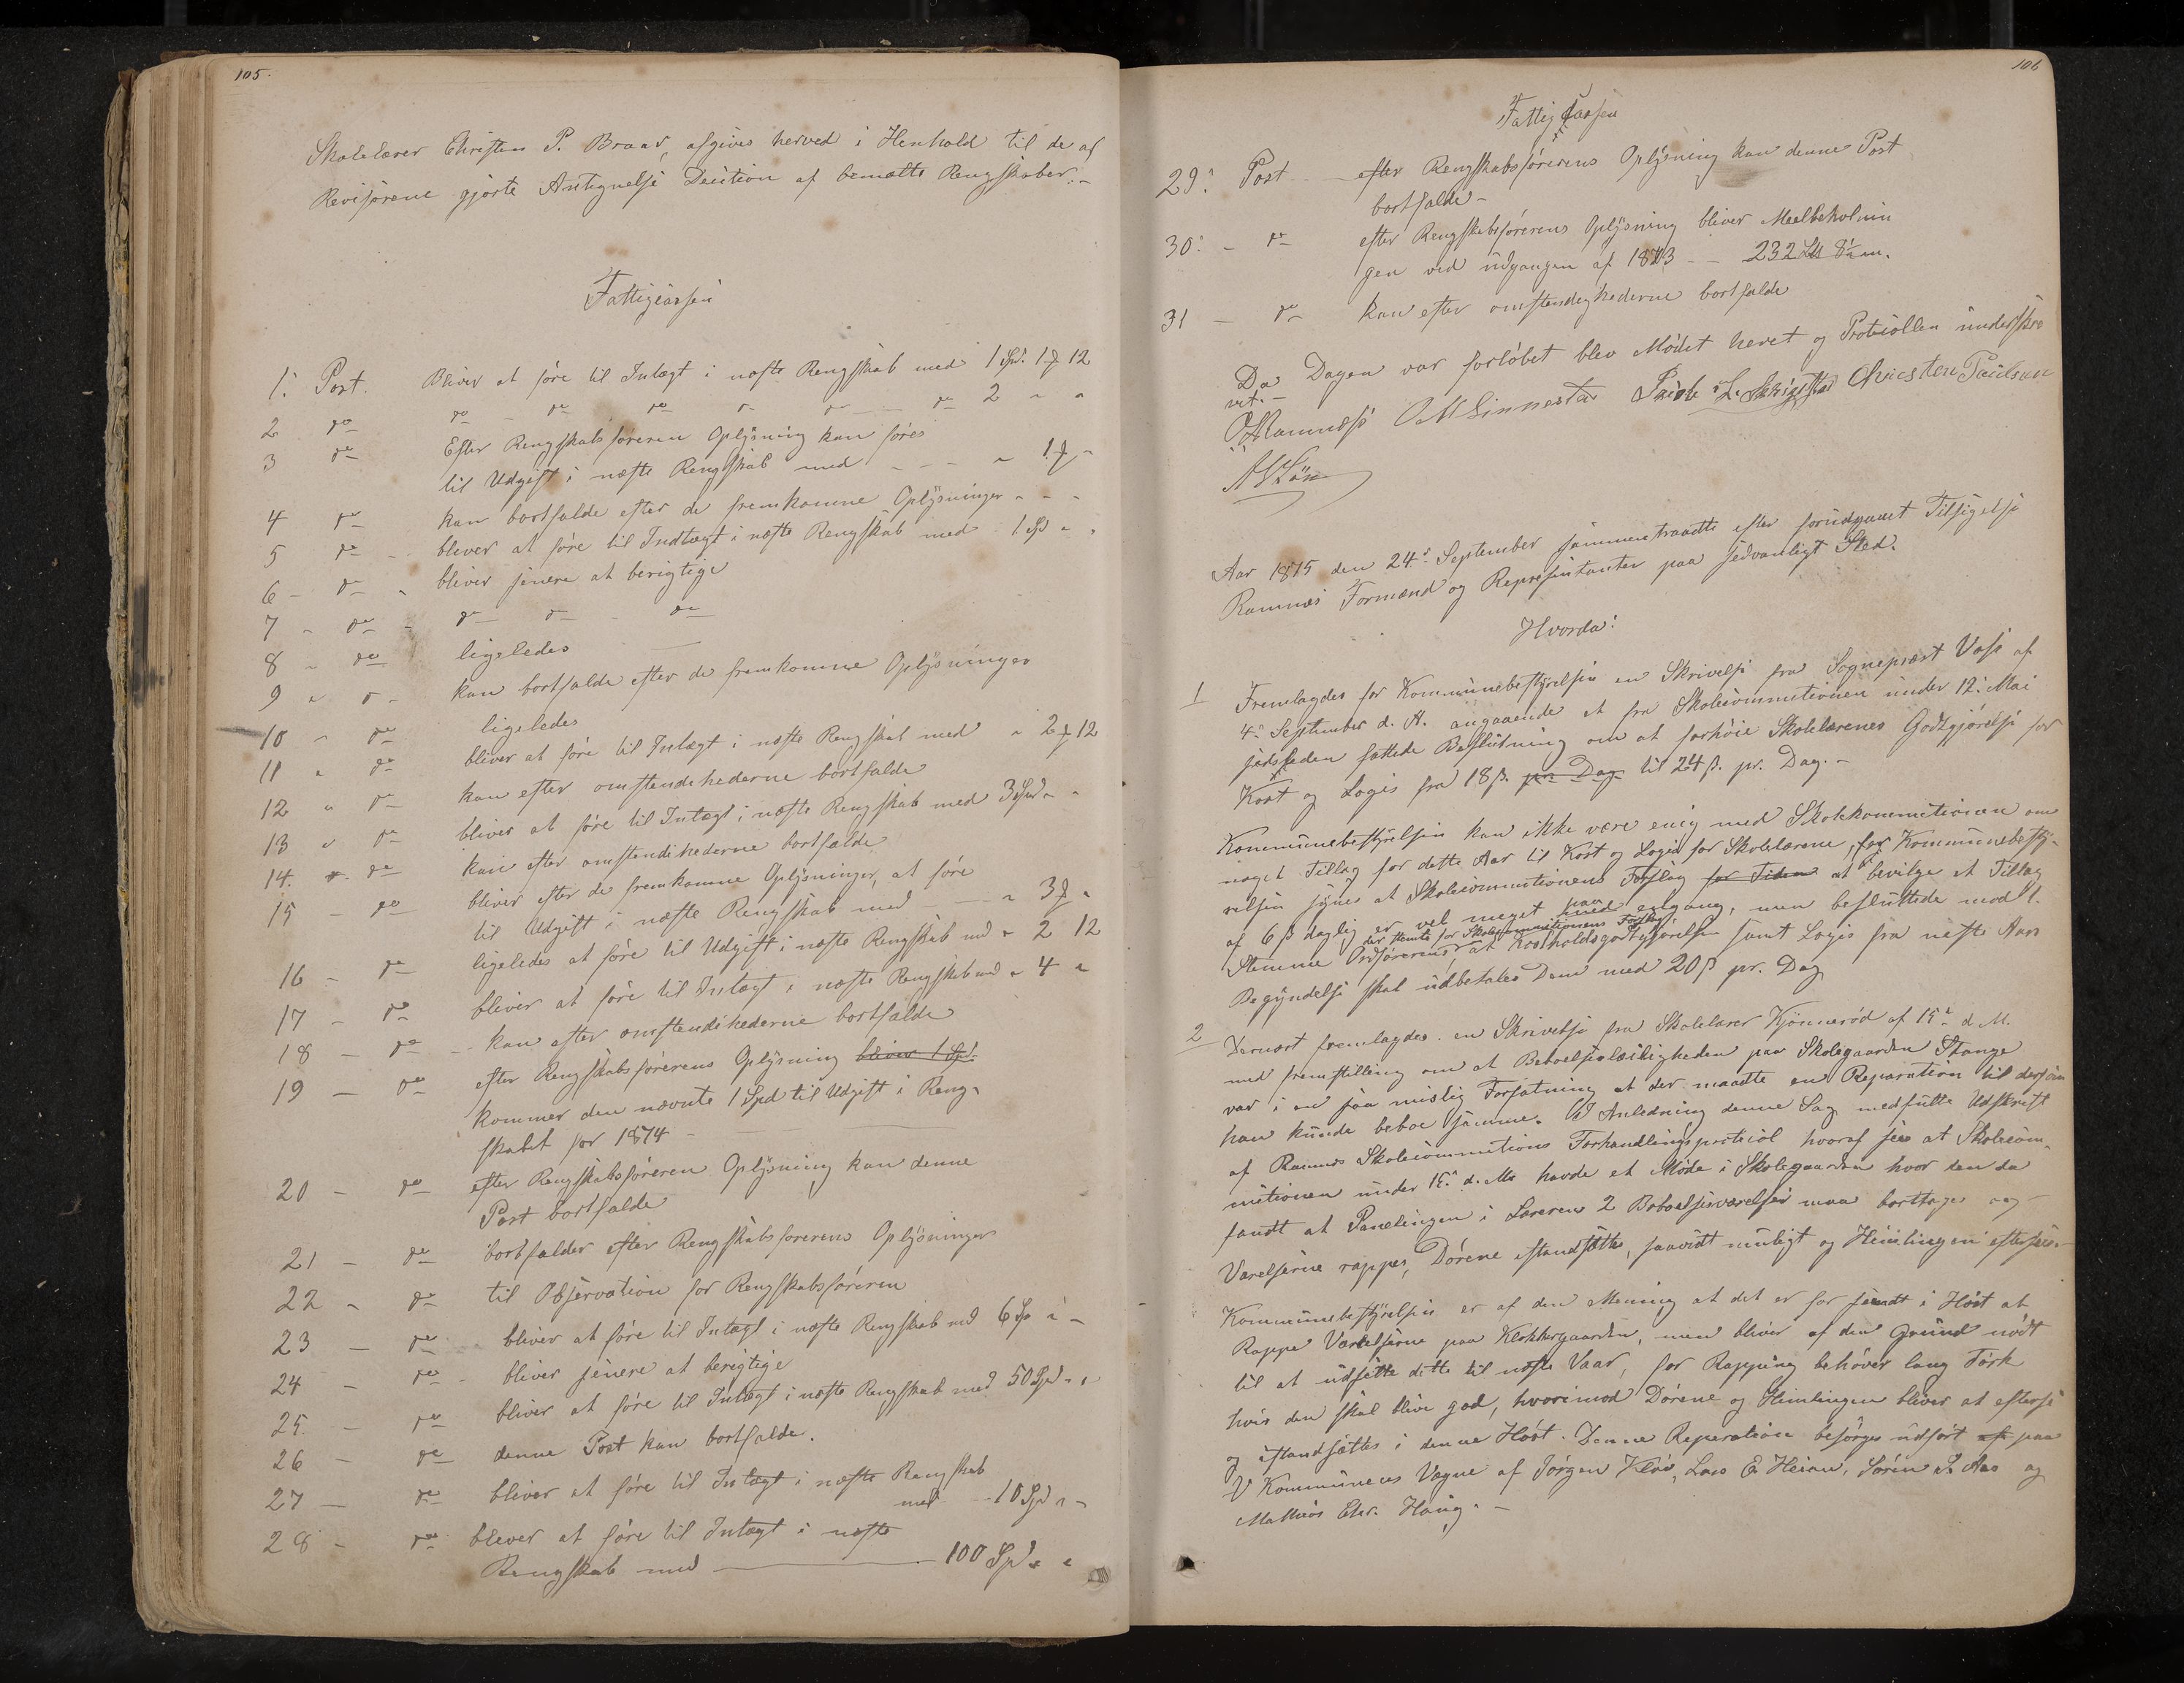 105.
Skolelærer Christen P. Braar, afgives herved i Henhold til de af
Revisorene gjorte Antegnelse Decition af bemælte Rengskaber.-
Fattigcassen
1. Post. Bliver at føre til Intægt i næste Rengskab med 1 Spd. 1 # 12
2 do do - do do do do - do 2 " "
3 do Efter Rengskabsføreren Oplysning kan føres
til Udgift i næste Rengskab med - - - " 1 # "
4 do kan bortfalde efter de fremkomne Oplysninger - - -
5 do - bliver at føre til Indtægt i næste Rengskab med 1 Sp " "
6 - do " bliver senere at berigtige
7 - do - do do - do
8 " do ligeledes
9 " do - kan bortfalde efter de fremkomne Oplysninger
10 " do ligeledes
11 " do bliver at føre til Intægt i næste Rengskab med " 2 # 12
12 " do kan efter omstendihederne bortfalde
13 " do bliver at føre til Intægt i næste Rengskab med 3 Spd " "
14. do kan efter omstendihederne bortfalde
15 - do bliver efter de fremkomne Oplysninger, at føre
til Udgift i næste Rengskab med - " 3 # "
16 - do ligeledes at føre til Udgift i næste Rengskab med " 2 12
17 - do bliver at føre til Intægt i næste Rengskab med " 4 "
18 - do - kan efter omstendihederne bortfalde
19 - do efter Rengskabsførerens Oplysning bliver 1 Spd.
kommer den nævnte 1 Spd til Udgift i Reng-
skabet for 1874 -
20 - do efter Rengskabsføreren Oplysning kan denne
Post bortfalde
21 - do bortfalder efter Rengskabsførerens Oplysninger
22 - do til Observation for Rengskabsføreren
23 - do bliver at føre til Intægt i næste Rengskab med 6 Sp " -
24 - do - bliver senere at berigtige
25 - do bliver at føre til Intægt i næste Rengskab med 50 Spd " "
26 - do denne Post kan bortfalde.
27 - do bliver at føre til Intægt i næste Rengskab
med - 10 Spd " "
28 - do bliver at føre til Intægt i næste
Rengskab med - 100 Spd " "
106
Fattigcassen
29. Post - efter Rengskabsførerens Oplysning kan denne Post
bortfalde -
30. - do efter Rengskabsførerens Oplysning bliver Meelbeholnin
gen ved udgangen af 1873 - - 232
31 - do kan efter omstendeghederne bortfalde
Da Dagen var forløbet blev Mødet hevet og Protocollen underskre
vet. -
Ramnæs Christen Paulsen
Aar 1875 den 24de September sammentraadte efter forudgaaet Tilsigelse
Ramnæs Formænd og Repræsentanter paa sedvanligt Sted.
Hvorda:
1 Fremlagdes for Kommunebestyrelsen en Skrivelse fra Sogneprest Vase af
4de September d. A. angaaende et fra Skolecommitionen under 12te Mai
sidstleden fattede Beslutning om at forhøie Skolelærenes Godtgjørelse for
Kost og Logis fra 18 ß. pr. Dag til 24 ß. pr. Dag. -
Kommunebestyrelsen kan ikke være enig med Skolekommitionen om
noget Tillæg for dette Aar til Kost og Logis for Skolelærene, for Kommunebesty-
relsen synes at Skolecommitionens Forslag for Tiden at bevilge et Tillæg
af 6 ß daglig er vel meget paa engang, men besluttede mod 1.
Stemme Ordførerens, der stemte for Skolecommitionens Forslag at Kostholdsgodtgjørelsen samt Logis fra næste Aars
Begyndelse skal udbetales Dem med 20 ß pr. Dag
2 Dernæst fremlagdes en Skrivelse fra Skolelærer Kjønnerød af 15de d. M.
med fremstilling om at Beboelsesleiligheden paa Skolegaarden Stange
var i en saa mislig Forfatning at der maatte en Reparation til dersom
han kunde beboe samme. I Anledning denne Sag medfulte Udskrift
af Ramnes Skolecommitions Forhandlingsprotocol hvoraf sees at Skolecom-
mitionen under 15de d. M. havde et Møde i Skolegaarden hvor den da
fandt at Panelingen i Lærerens 2 Beboelsesværelser maa borttages og -
Værelserne rappes, Dørene istandsættes, saavidt muligt og Himlingen eftersees.
Kommunebestyrelsen er af den Mening at det er for seendt i Høst at
Rappe Værelserne paa Klokkergaarden, men bliver af den Grund nødt
til at udsætte dette til næste Vaar, for Rapping behøver lang Tørk
hvis den skal blive god, hvorimod Dørene og Himlingen bliver at efterse
og istandsættes i denne Høst. Denne Reparation besørges udført af paa
Kommunens Vegne af Jørgen Klov, Lars E. Heian, Søren S. Aas og
Mathias Ehr. Haug. -